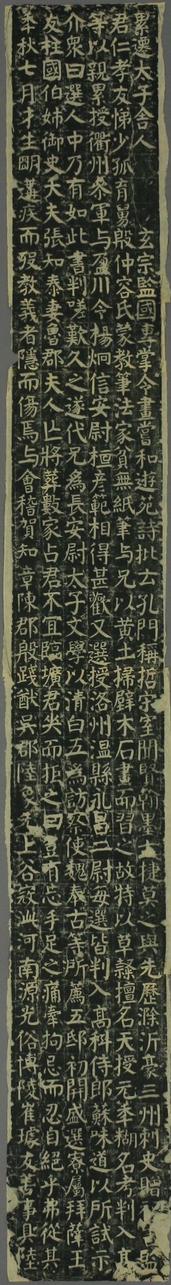 累遷太子舍人 玄宗監國專掌令畫嘗和遊苑詩批云孔門稱哲宋室聞賢翰墨之捷莫之與先歷滁沂豪三州刺史贈監
君仁孝友悌少孤育舅殷仲容氏蒙教筆法家貧無紙筆与兄以黃土掃壁木石畫而習之故特以草隸擅名天授元年糊名考判入高
等以親累授衢州參軍与盈川令楊炯信安尉桓彥範相得甚歡又選授洛州溫縣永昌二尉每選皆判入高科侍郎蘇味道以所試示
介衆曰選人中乃有如此書判嗟歎久之遂代兄為長安尉太子文學以清白五為訪察使魏奉古等所薦五邸初開盛選寮屬拜薛王
友柱國伯姊御史大夫張知泰妻魯郡夫人亡將葬數家占君不宜臨壙君哭而拒之曰豈有忘手足之痛牽拘忌而忍自絕乎弗從其
家秋七月才生明遘疾而歿教義者隱而傷焉与會稽賀知章陳郡殷踐猷吳郡陸象先上谷寇泚河南源光俗博陵崔璩友善事具陸